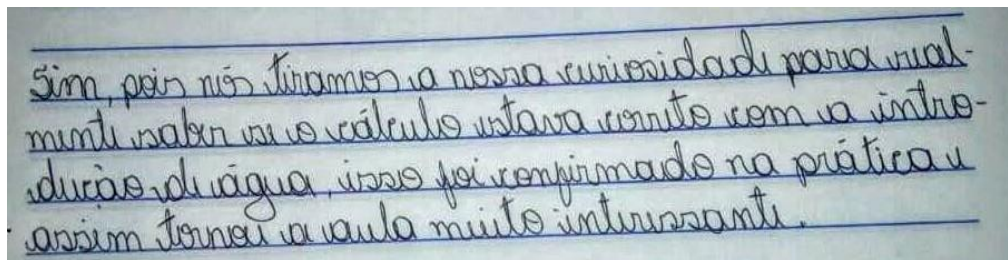 Sim, pois nós tiramos a nossa curiosidade para real-
mente saber se o cálculo estava correto com a intro-
dução de água, isso foi confirmado na prática e
assim tornou a aula muito interessante.